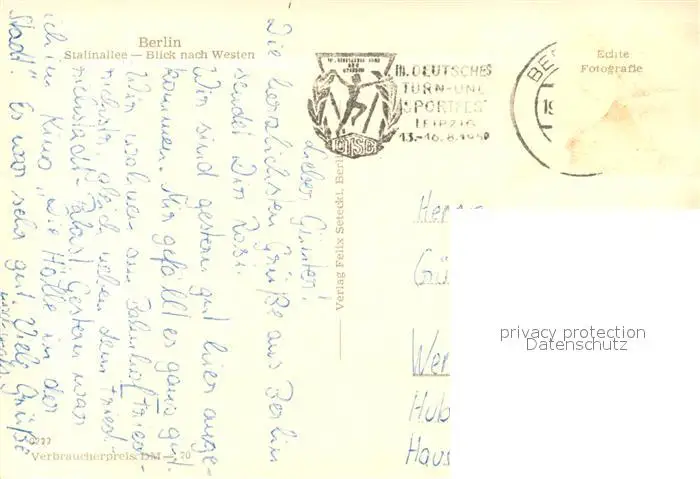 Berlin
Stalinallee — Blick nach Westen
Echte
Fotografie
III. DEUTSCHES
TURN- UND
SPORTFEST
LEIPZIG
13.-16.8.1959
DTSB
BE
19
Lieber Günter!
Die herzlichsten Grüße aus Berlin
sendet Dir Rosi.
Wir sind gestern gut hier ange-
kommen. Mir gefällt es ganz gut.
Wir wohnen am Bahnhof Fried-
richstr. gleich neben dem Fried-
richstadt-Palast. Gestern war
ich im Kino „Die Hölle in der
Stadt". Es war sehr gut. Viele Grüße
Verlag Felix Setecki, Berlin
Her
Gü
Wer
Hub
Haus
privacy protection
Datenschutz
Verbraucherpreis DM —.20